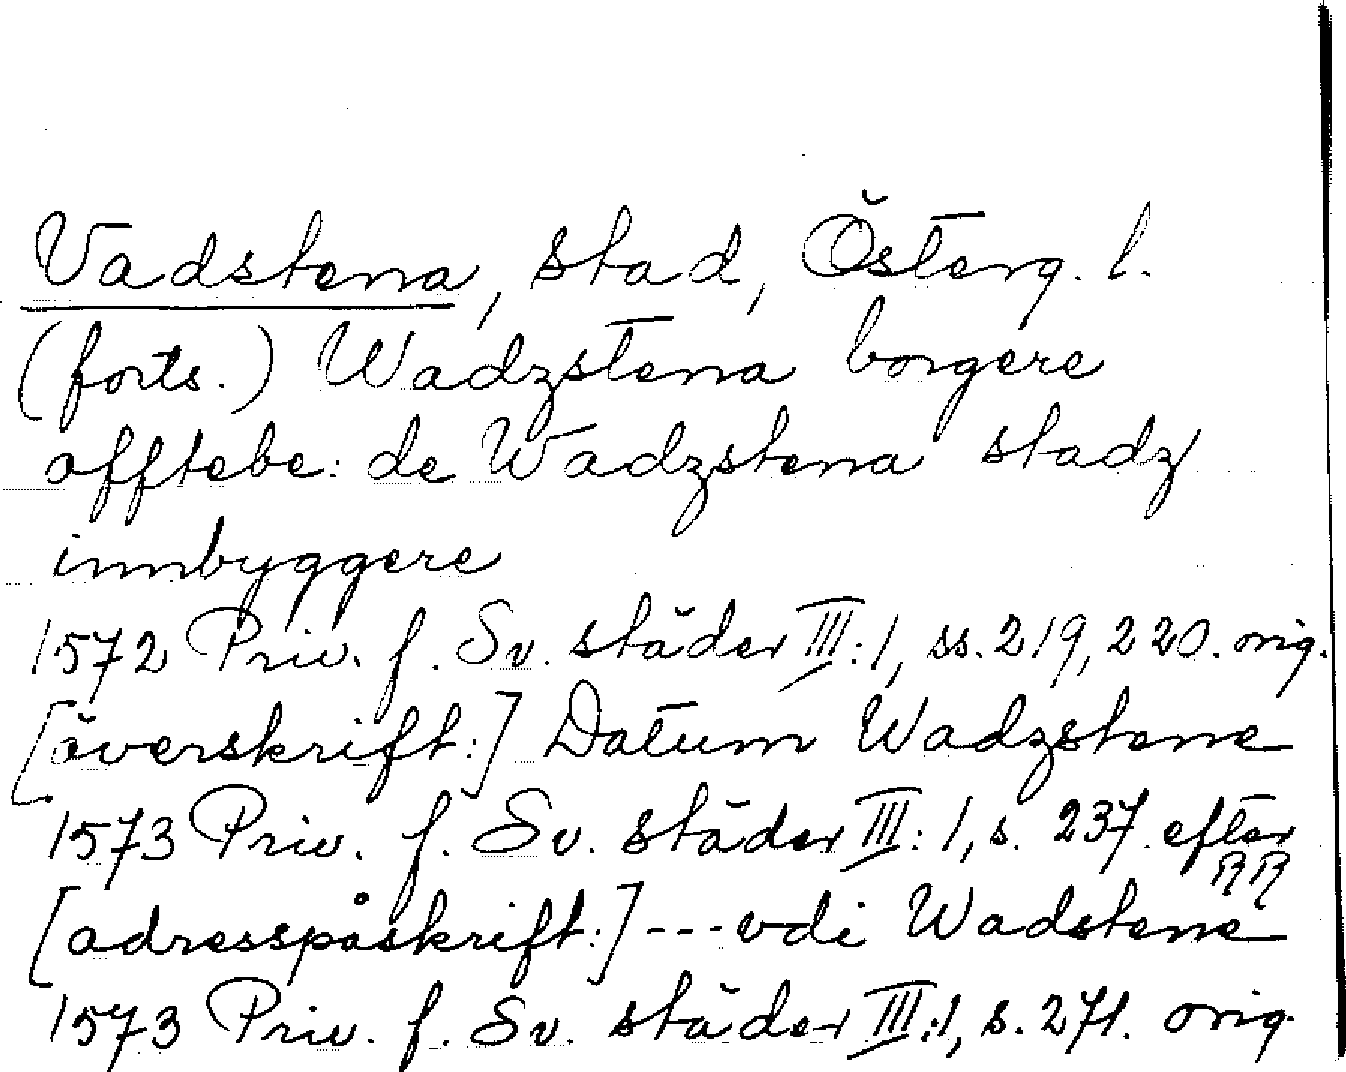 Vadstena, stad, Österg. l.
(forts.) Wadzstena borgere
afftebe: de Wadzstena stadz
innbyggere
1572 Priv. f. Sv. städer III:1, ss. 219, 220. orig.
[överskrift:] Datum Wadzstene
1573 Priv. f. Sv. städer III:1, s. 237. efter
RR
[adresspåskrift:] --- vdi Wadstene
1573 Priv. f. Sv. städer III:1, s. 271. orig.